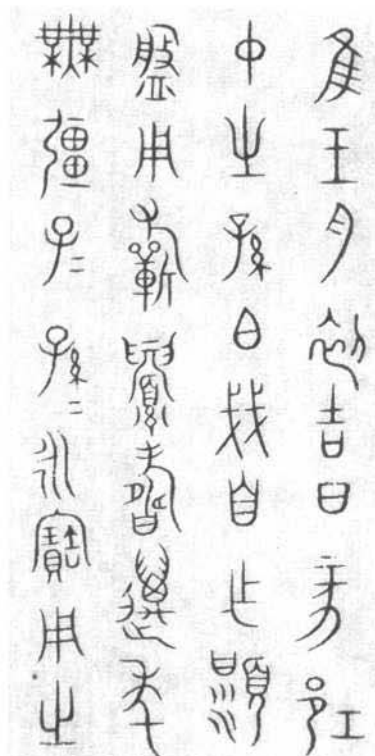 隹王月初吉丁亥邛
中之孫白戔自乍頮
盤用祈眉壽萬年
無疆子=孫=永寶用之